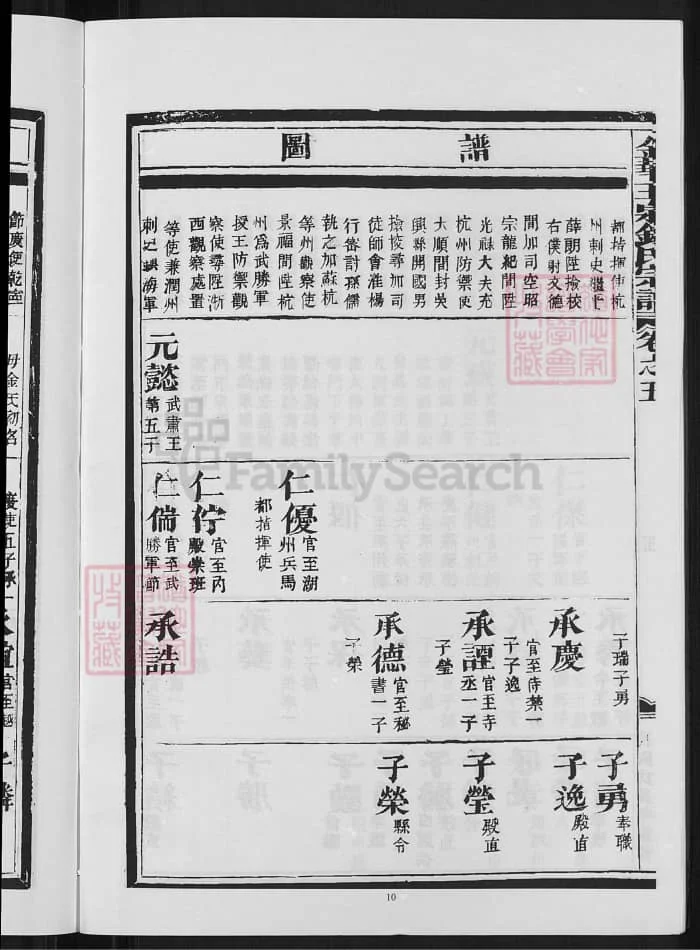 譜圖
都指揮使杭
州刺史
薛朗陞檢校
右僕射文德
間加司空昭
宗龍紀間陞
光祿大夫充
杭州防禦使
大順間封吳
興縣開國男
檢校尋加司
徒師會淮楊
行密討孫儒
執之加蘇杭
等州觀察使
景福間陞杭
州為武勝軍
授王防禦觀
察使尋陞浙
西觀察處置
等使兼潤州
刺史鎮海軍
元懿
武肅王
第五子
仁優
官至湖
州兵馬
都指揮使
仁佇
官至內
殿崇班
仁偫
官至武
勝軍節
子瑞子勇
承慶
官至侍禁一
子子逸
承諲
官至寺
丞一子
子瑩
承德
官至秘
書一子
子榮
承誥
子勇
奉職
子逸
殿直
子瑩
殿直
子榮
縣令
卷之五
母金氏初名
官至
FamilySearch
10